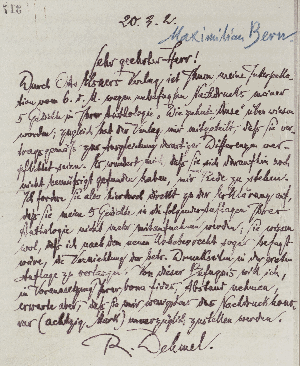 20. 3. 2.
Maximilian Bern.
Sehr geehrter Herr!
Durch Otto Elsners Verlag ist Ihnen meine Interpella-
tion vom 6. d. M. wegen mehrfachen Nachdrucks meiner
5 Gedichte in Ihrer Anthologie "Die zehnte Muse" überwiesen
worden; zugleich hat der Verlag mir mitgeteilt, daß Sie ver-
tragsgemäß zur Ausgleichung derartiger Differenzen ver-
pflichtet seien. Es wundert mich, daß Sie sich daraufhin noch
nicht bemüßigt gefunden haben, mir Rede zu stehen.
Ich fordre Sie also hierdurch direkt zu der Erklärung auf,
daß Sie meine 5 Gedichte in die folgenden Auflagen Ihrer
Anthologie nicht mehr mitaufnehmen werden; Sie wissen
wol, daß ich nach dem neuen Urheberrecht sogar befugt
wäre, die Vernichtung der betr. Druckseiten in der
Auflage zu verlangen. Von dieser Befugnis will ich,
in Voraussetzung Ihrer bona fides, Abstand nehmen,
erwarte aber, daß Sie mir wenigstens das Nachdruckhono-
rar (achtzig Mark) unverzüglich zustellen werden.
R. Dehmel.